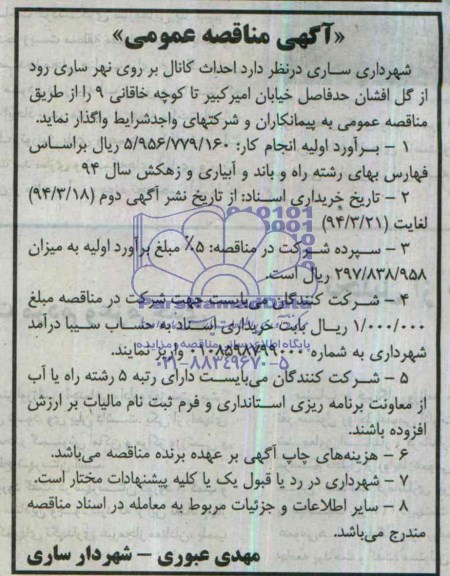 «آگهی مناقصه عمومی»
شهرداری ساری درنظر دارد احداث کانال بر روی نهر ساری رود
از گل افشان حدفاصل خیابان امیرکبیر تا کوچه خاقانی ۹ را از طریق
مناقصه عمومی به پیمانکاران و شرکتهای واجدشرایط واگذار نماید.
۱ – برآورد اولیه انجام کار: ۵/۹۵۶/۷۷۹/۱۶۰ ریال براساس
فهارس بهای رشته راه و باند و آبیاری و زهکش سال ۹۴
۲ – تاریخ خریداری اسناد: از تاریخ نشر آگهی دوم (۹۴/۳/۱۸)
لغایت (۹۴/۳/۲۱)
۳ – سپرده شرکت در مناقصه: ۵٪ مبلغ برآورد اولیه به میزان
۲۹۷/۸۳۸/۹۵۸ ریال است.
۴ – شرکت کنندگان می‌بایست جهت شرکت در مناقصه مبلغ
۱/۰۰۰/۰۰۰ ریال بابت خریداری اسناد به حساب سیبا درآمد
شهرداری به شماره واریز نمایند.
پایگاه اطلاع رسانی مناقصه و مزایده
۰۲۱-۸۸۳۴۹۶۷۰-۵
۵ – شرکت کنندگان می‌بایست دارای رتبه ۵ رشته راه یا آب
از معاونت برنامه ریزی استانداری و فرم ثبت نام مالیات بر ارزش
افزوده باشند.
۶ – هزینه‌های چاپ آگهی بر عهده برنده مناقصه می‌باشد.
۷ – شهرداری در رد یا قبول یک یا کلیه پیشنهادات مختار است.
۸ – سایر اطلاعات و جزئیات مربوط به معامله در اسناد مناقصه
مندرج می‌باشد.
مهدی عبوری – شهردار ساری